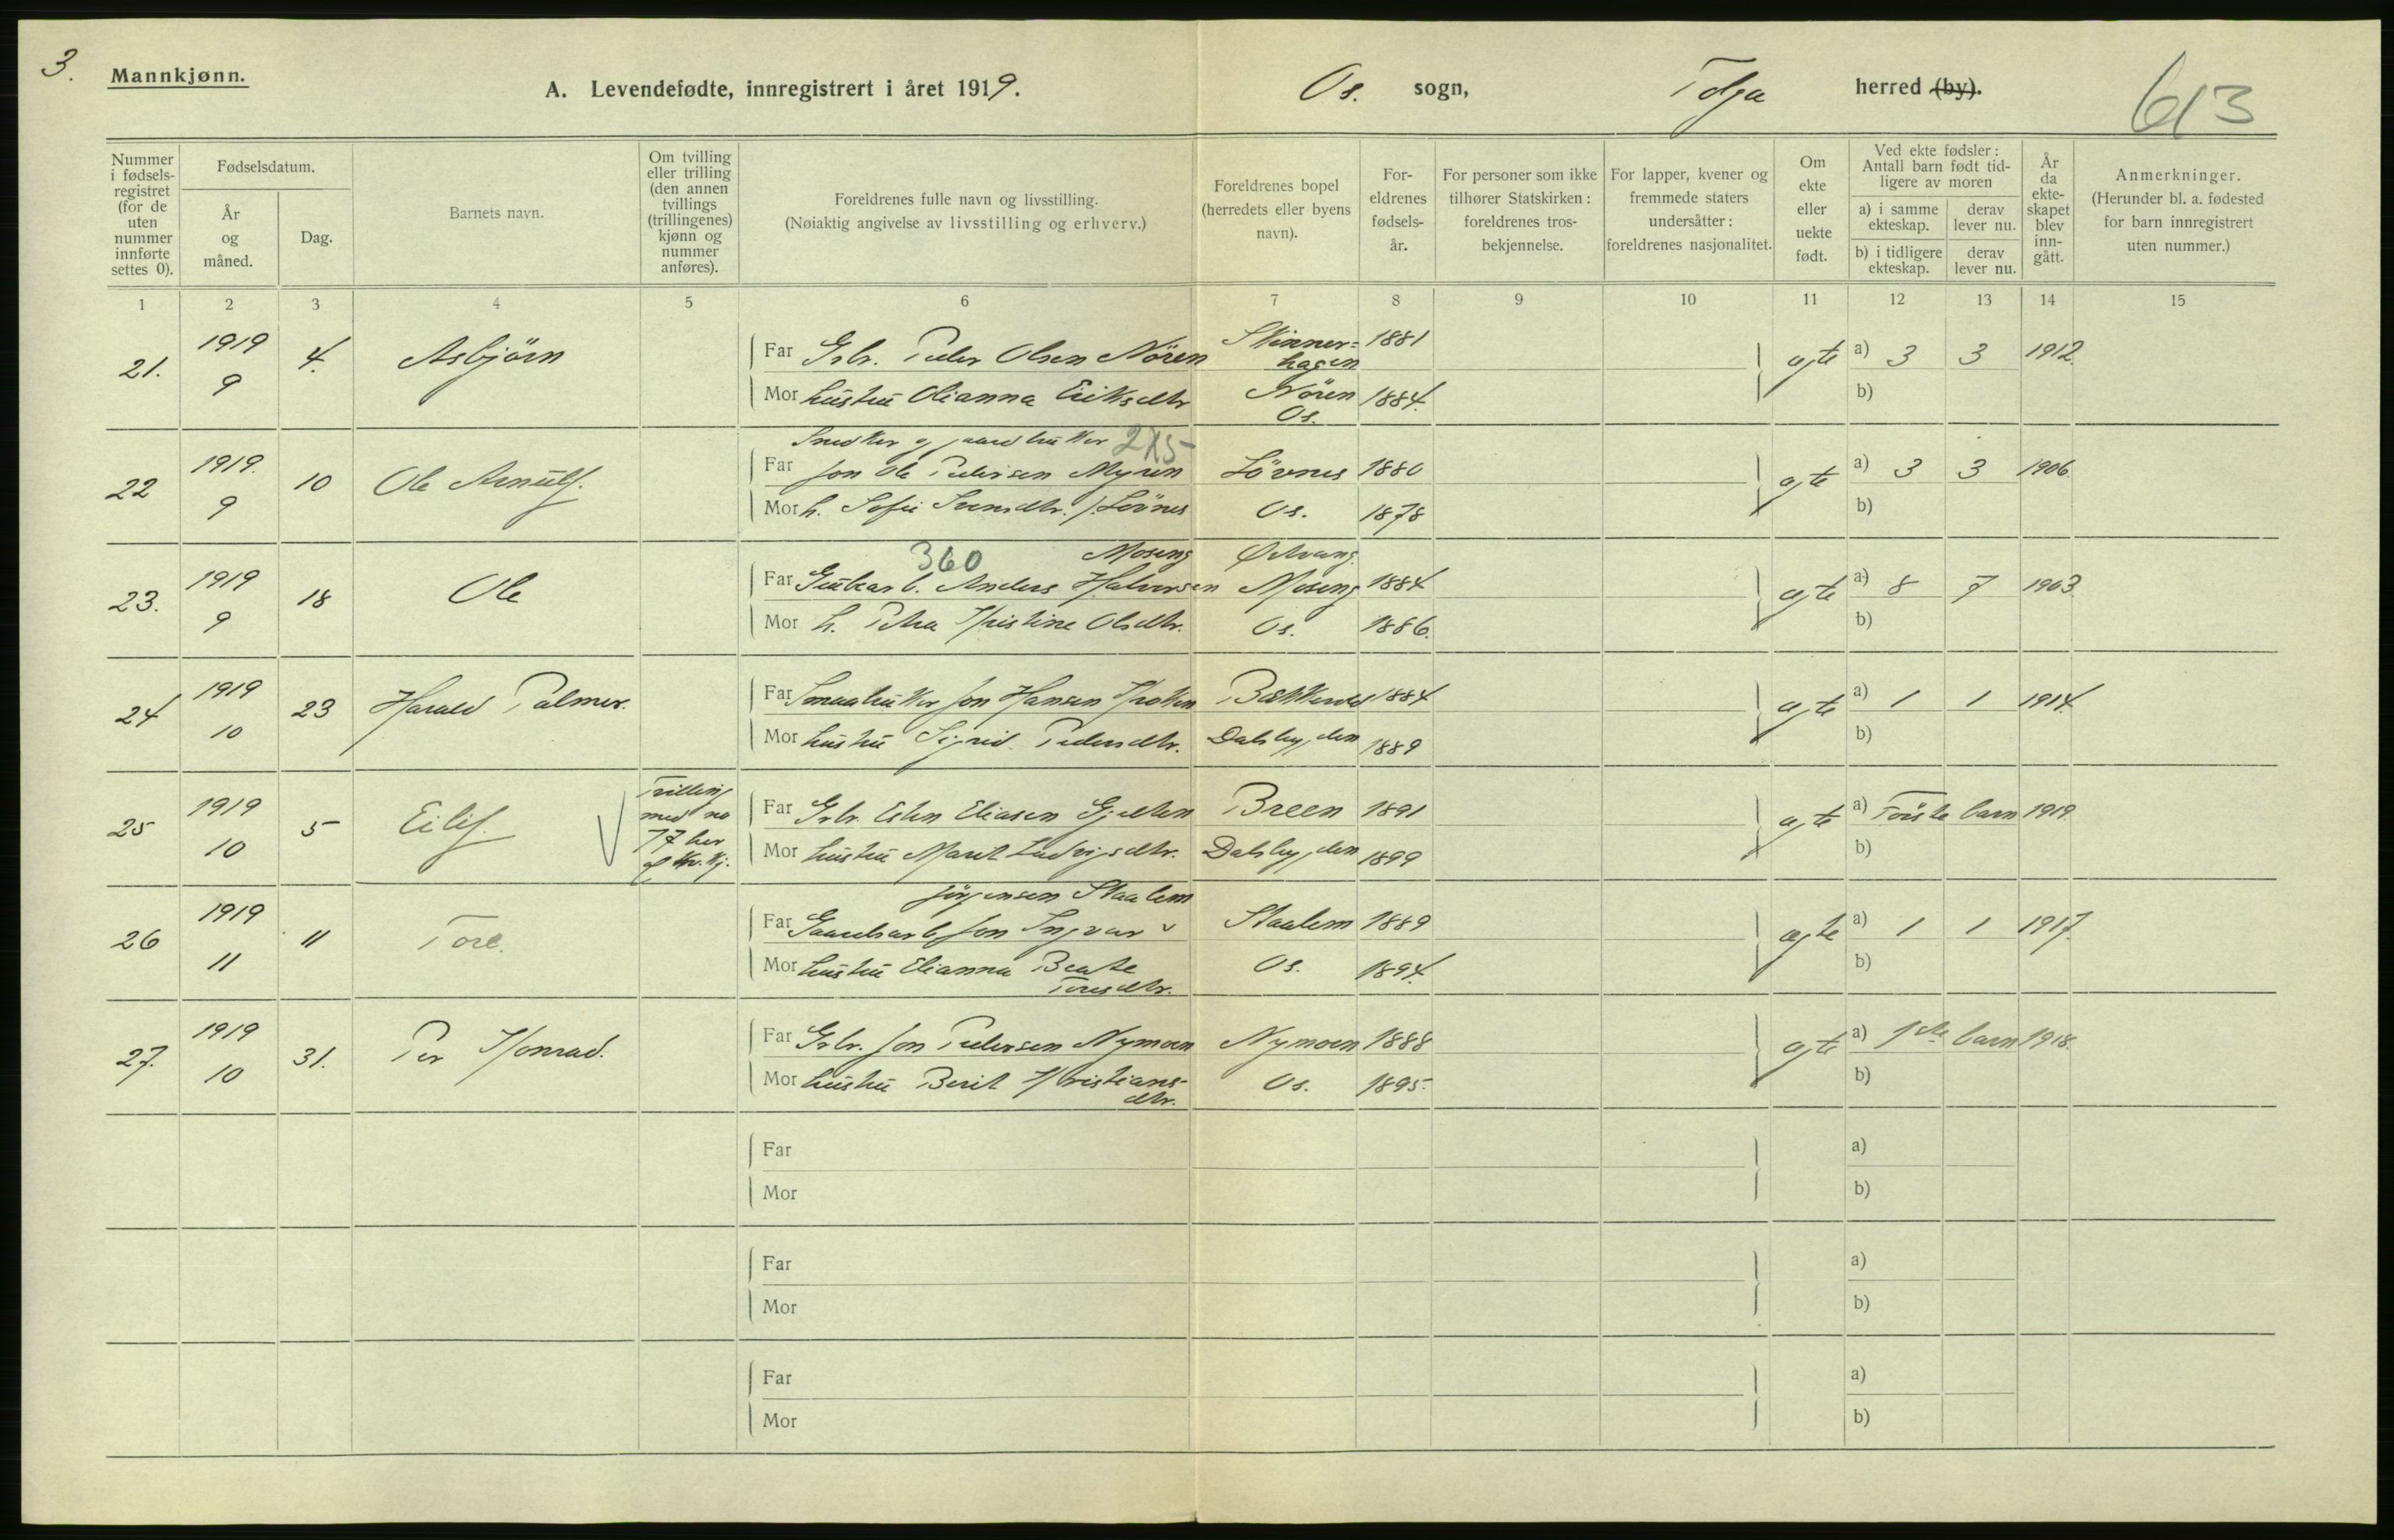 3.
Mannkjønn.
A. Levendefødte, innregistrert i året 1919.
Os. sogn, Tolga herred (by).
613
Nummer i fødsels-registret (for de uten nummer innførte settes 0).
Fødselsdatum.
År og måned.
Dag.
Barnets navn.
Om tvilling eller trilling (den annen tvillings (trillingenes) kjønn og nummer anføres).
Foreldrenes fulle navn og livsstilling.
(Nøiaktig angivelse av livsstilling og erhverv.)
Foreldrenes bopel (herredets eller byens navn).
For-eldrenes fødsels-år.
For personer som ikke tilhører Statskirken: foreldrenes tros-bekjennelse.
For lapper, kvener og fremmede staters undersåtter: foreldrenes nasjonalitet.
Om ekte eller uekte født.
Ved ekte fødsler: Antall barn født tid-ligere av moren
a) i samme ekteskap.
derav lever nu.
b) i tidligere ekteskap.
derav lever nu.
År da ekte-skapet blev inn-gått.
Anmerkninger.
(Herunder bl. a. fødested for barn innregistrert uten nummer.)
1 2 3 4 5 6 7 8 9 10 11 12 13 14 15
21. 1919 9 4. Asbjörn
Far Grbr. Peder Olsen Nören Skinner=hagen 1881
Mor hustru Olianna Eriksdtr Nören Os. 1884.
ægte a) 3 3 1912.
b)
Snedker og gaardbruker 2X5-
22 1919. 9 10 Ole Arnulf.
Far Jon Ole Pedersen Myren Lövnes 1880
Mor h. Sofie Svensdtr. Lövnes Os. 1878
ægte a) 3 3 1906.
b)
360 Moseng
23. 1919 9 18 Ole
Far Anders Halvorsen Moseng 1884
Mor h. Petra Kristine Olsdtr. Os. 1886.
ægte a) 8 7 1903.
b)
24 1919 10 23 Harald Palmer.
Far Smaabruker Jon Hansen 1884
Mor hustru Sigrid Pedersdtr. Dalsbygden 1889
ægte a) 1 1 1914.
b)
25 1919 10 5 Eilif.
Trilling med no 7 her af kv. kj.
Far Grbr. Esten Eliasen Gjelten Breen 1891
Mor hustru Marit Ludvigsdtr. Dalsbygden 1899
ægte a) Förste barn 1919.
b)
Jörgensen Staalem
26 1919 11 11 Tore.
Far Gaardsarb Jon Ingvar v Staalem 1889
Mor hustru Elianna Beate Toresdtr. Os. 1894.
ægte a) 1 1 1917.
b)
27. 1919 10 31. Per Konrad.
Far Grbr. Jon Pedersen Nymoen Nymoen 1888
Mor hustru Berit Kristians-dtr. Os. 1895.
ægte a) 1ste barn 1918.
b)
Far a)
Mor b)
Far a)
Mor b)
Far a)
Mor b)